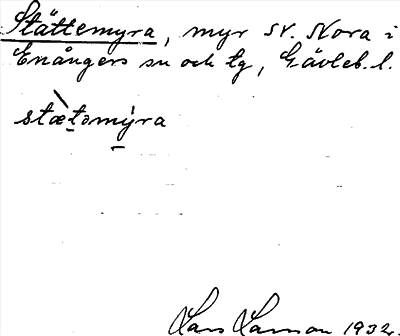 Stättemyra, myr sv. Nora i
Enångers sn och tg, Gävleb. l.
stætəmýra
Lars Larsson 1932.